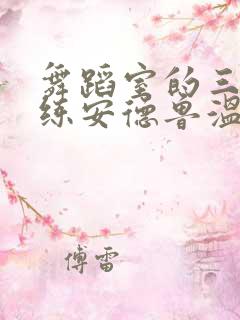 舞蹈室的三
练安德鲁温
傅雷